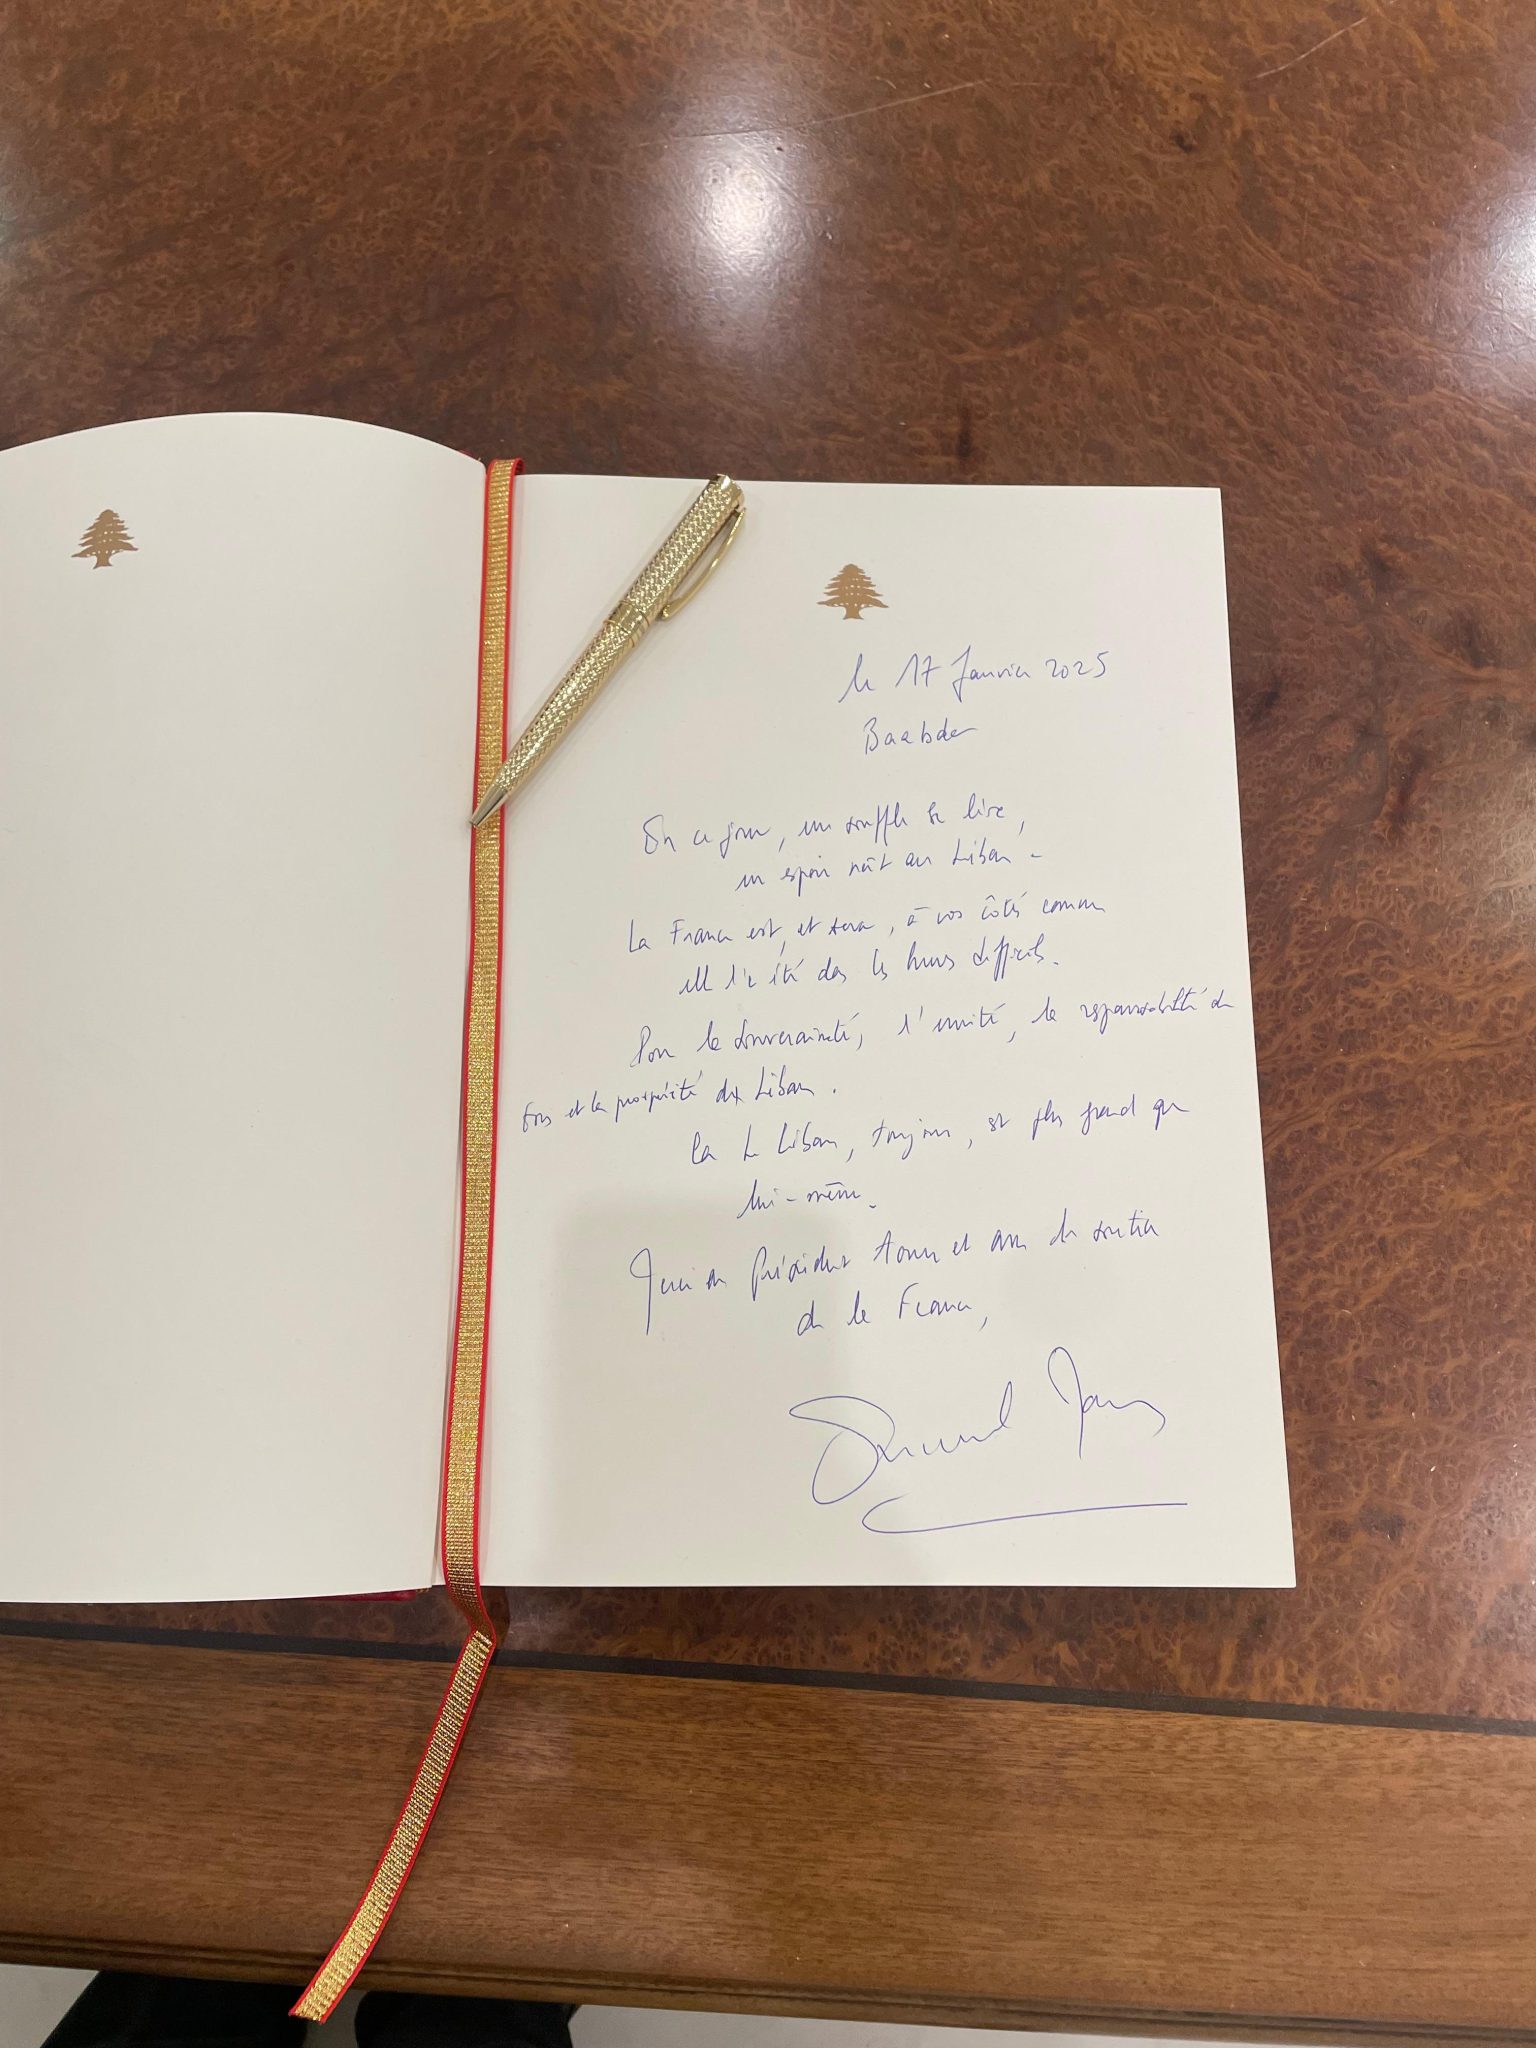 le 17 Janvier 2025
Baabda
En ce jour, un souffle se lève,
un espoir naît au Liban.
La France est, et sera, à vos côtés comme
elle l'a été dans les heures difficiles.
Pour la souveraineté, l'unité, la responsabilité de
tous et la prospérité du Liban.
Car le Liban, toujours, est plus grand que
lui-même.
Merci Président Aoun et du soutien
de la France,
Emmanuel Macron